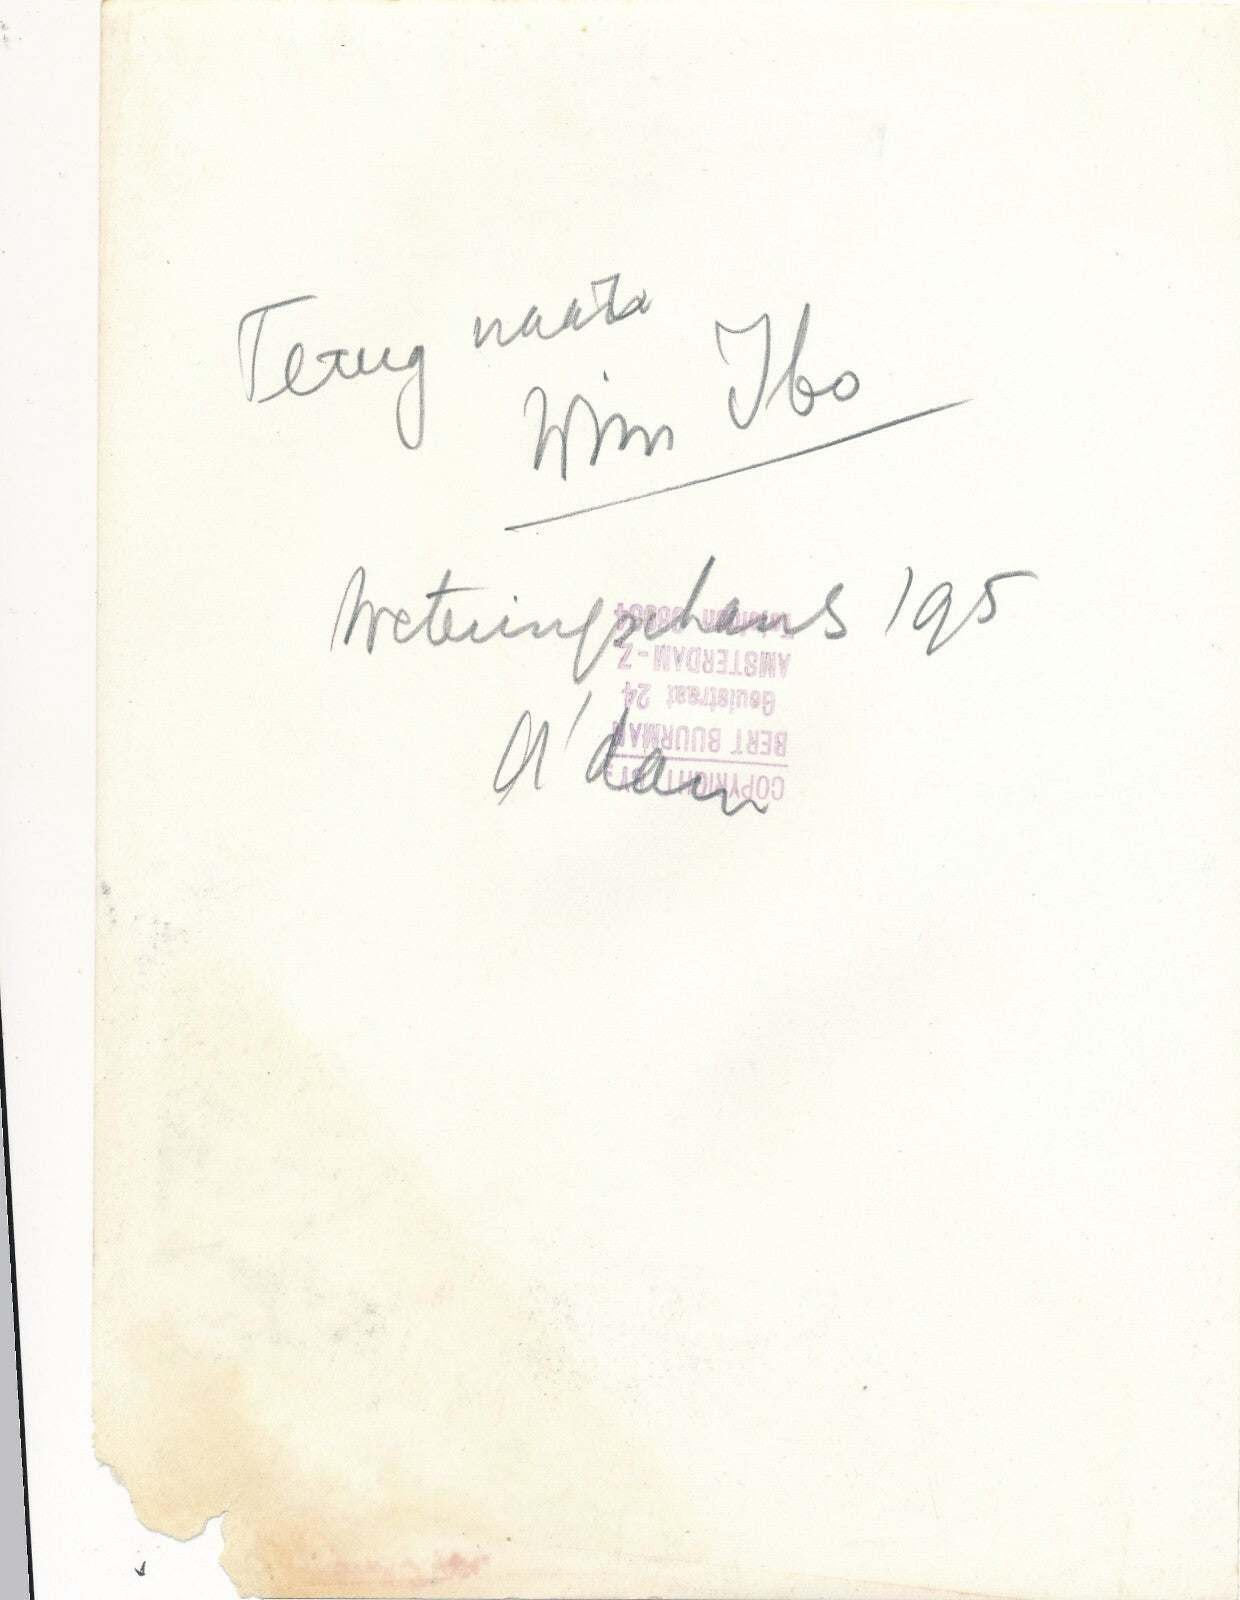 Terug naar
Wim Ibo
Weteringschans 195
A'dam
COPYRIGHT BY:
BERT BUURMAN
Geulstraat 24
AMSTERDAM - Z
Telefoon